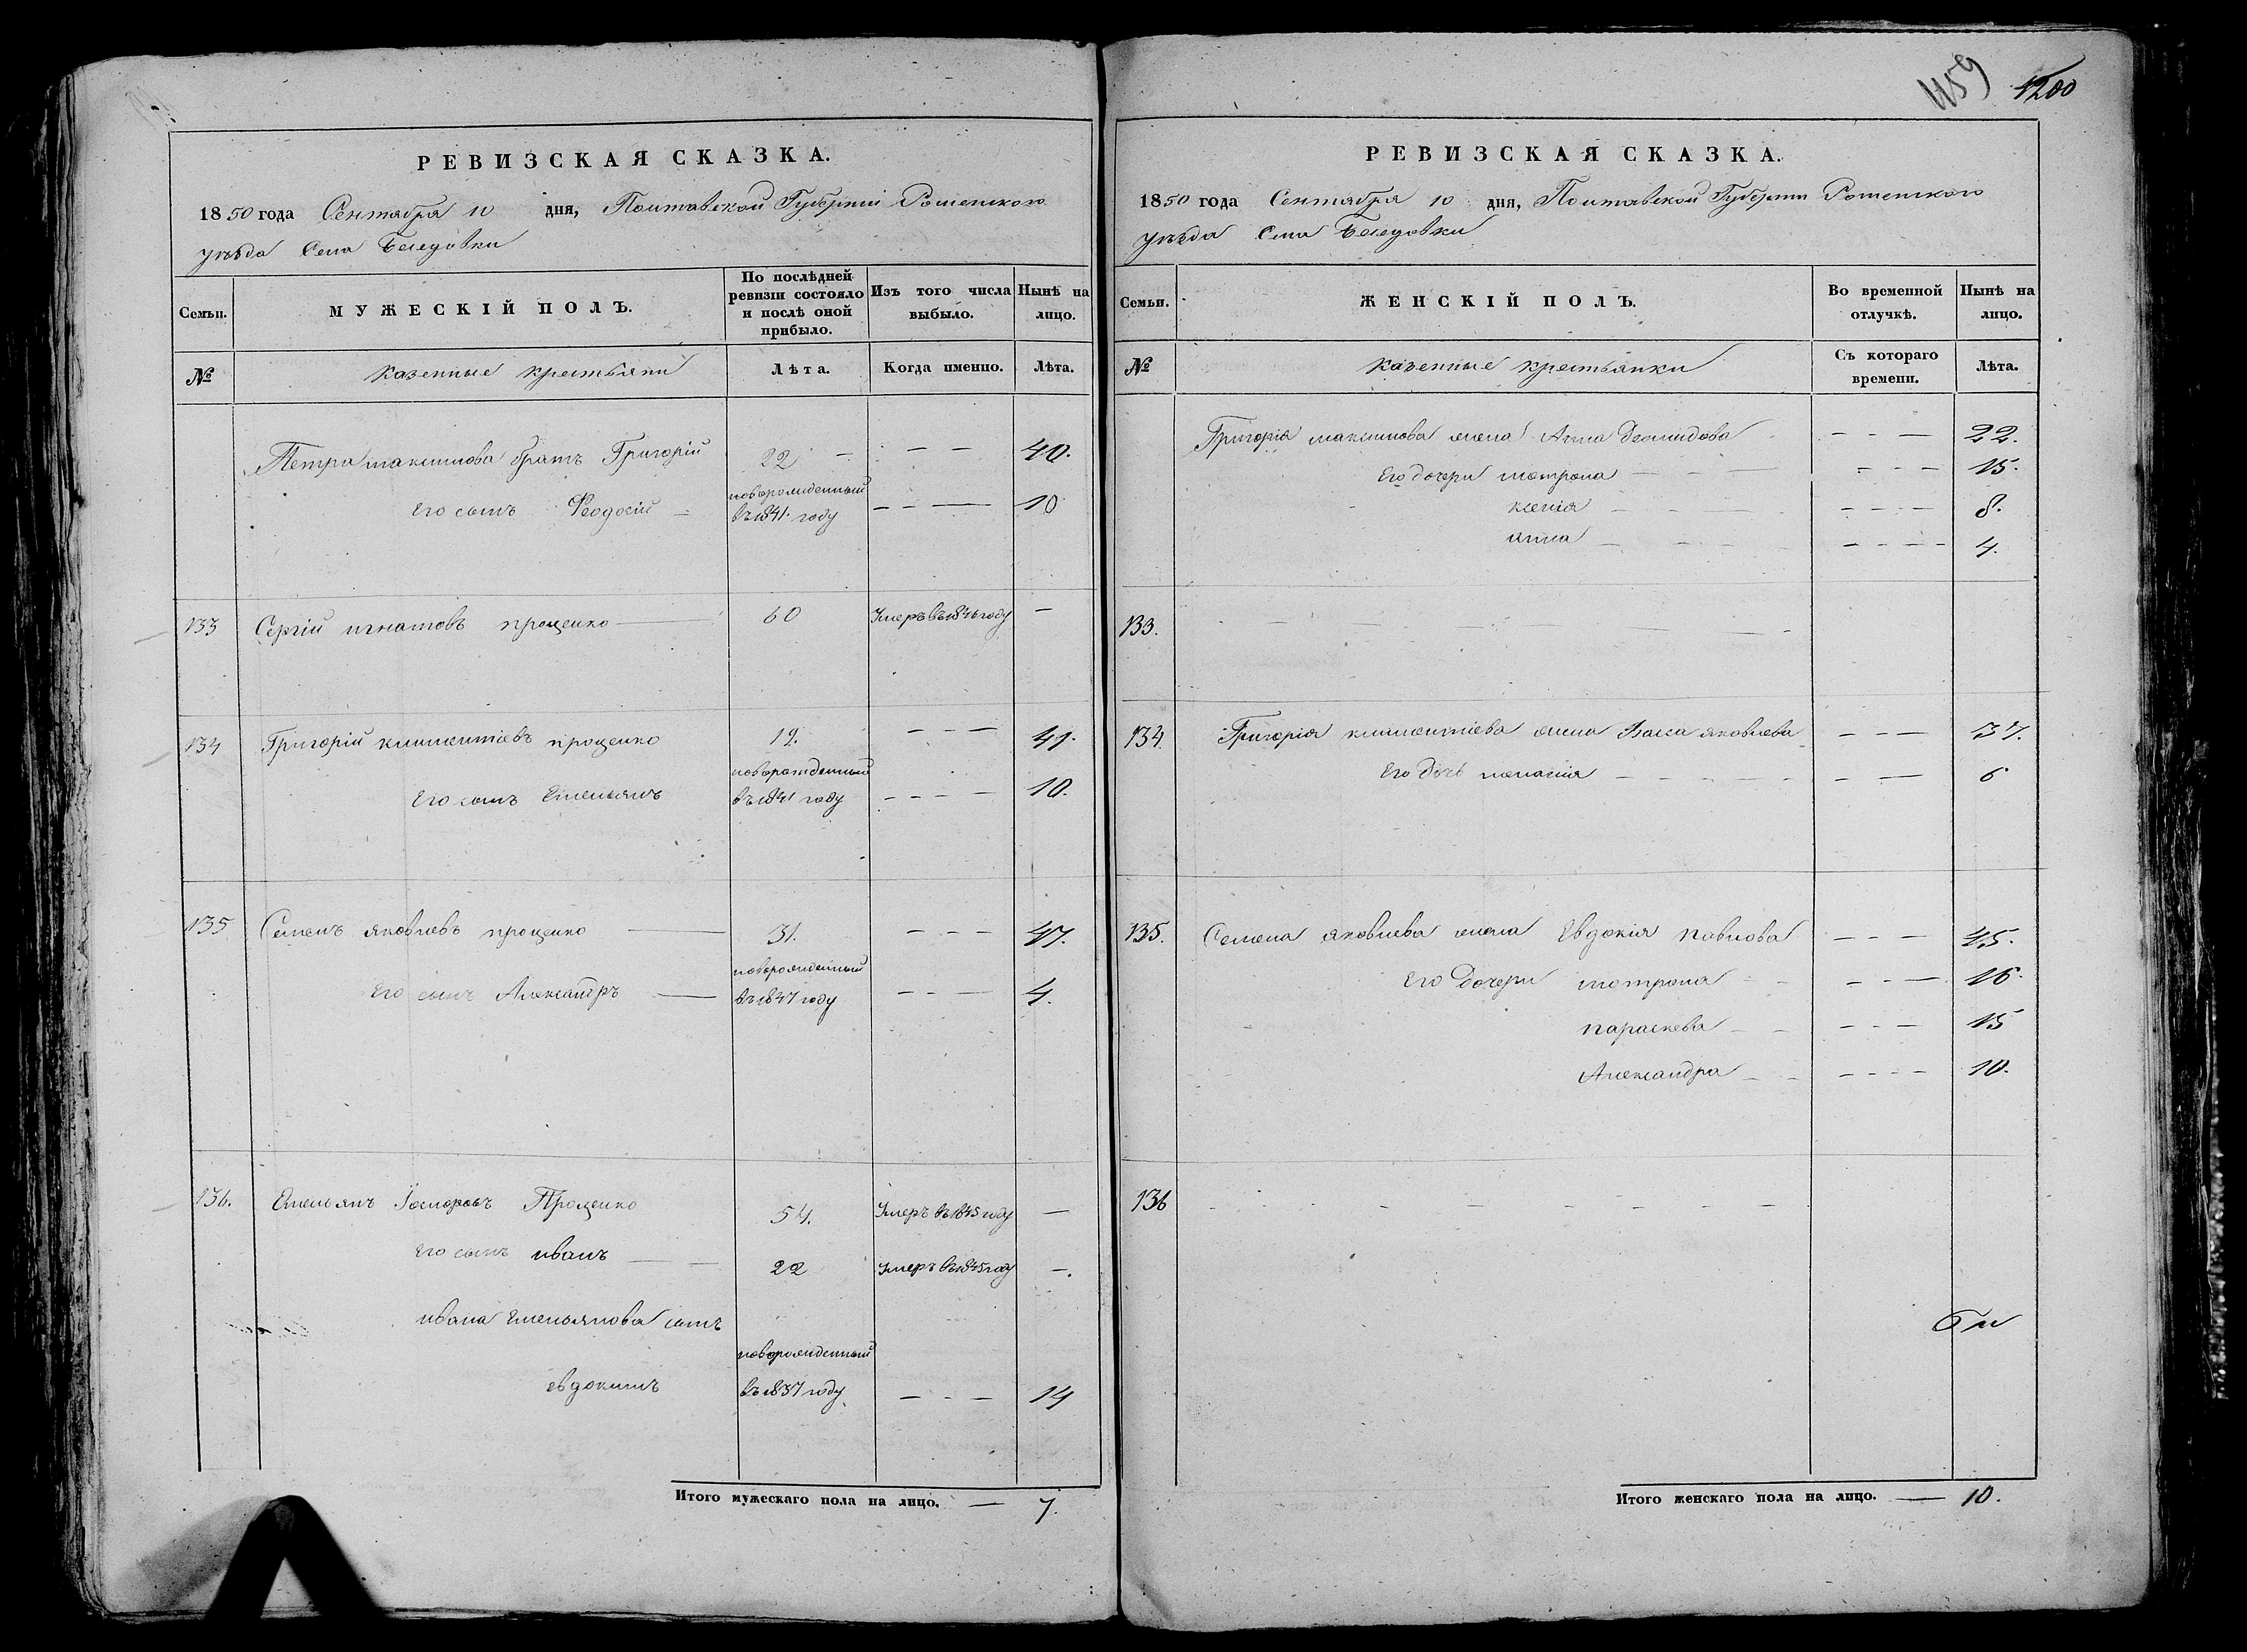 459 1200
РЕВИЗСКАЯ СКАЗКА.
1850 года Сентября 10 дня, Полтавской Губерніи Роменского
уѣзда Села Беседовки
Семьи.
МУЖЕСКІЙ ПОЛЪ.
По послѣдней ревизіи состояло и послѣ оной прибыло.
Изъ того числа выбыло.
Нынѣ на лицо.
№
Казенные крестьяни
Лѣта.
Когда именно.
Лѣта.
Петра максимова братъ Григорій 22 — — — 40.
новорожденный
Его сынъ Феодосій — въ 1841 году — — — 10
133 Сергій игнатовъ проценко 60 Умеръ въ 1846 году —
134 Григорій климентіевъ проценко 19. — — — 41.
новорожденный
Его сынъ Емельянъ въ 1841 году — — — 10.
135 Семенъ яковлевъ проценко — 31. — — — 47.
новорожденный
Его сынъ Александръ — въ 1847 году — — — 4.
136. Емельянъ Проценко 54. Умеръ въ 1845 году —
Его сынъ иванъ — — 22 Умеръ въ 1845 году —.
ивана Емельянова сынъ
новорожденный
евдокимъ въ 1837 году — — — 14
Итого мужескаго пола на лицо. — 7.
РЕВИЗСКАЯ СКАЗКА.
1850 года Сентября 10 дня, Полтавской Губерніи Роменского
уѣзда Села Беседовки
Семьи.
ЖЕНСКІЙ ПОЛЪ.
Во временной отлучкѣ.
Нынѣ на лицо.
№
казенные крестьянки
Съ котораго времени.
Лѣта.
Григорія максимова жена Анна Демидова — — — 22.
Его дочери мотрона — — — 15.
ксенія — — — 8.
анна — — — 4.
133. — — — —
134. Григорія климентіева жена Васса яковлева — — — 37.
Его дочь меланія — — — 6
135. Семена яковлева жена Евдокія павлова — — — 45.
Его дочери мотрона — — — 16.
параскева — — — 15
Александра — — — 10.
136 — — — —
Итого женскаго пола на лицо. — 10.